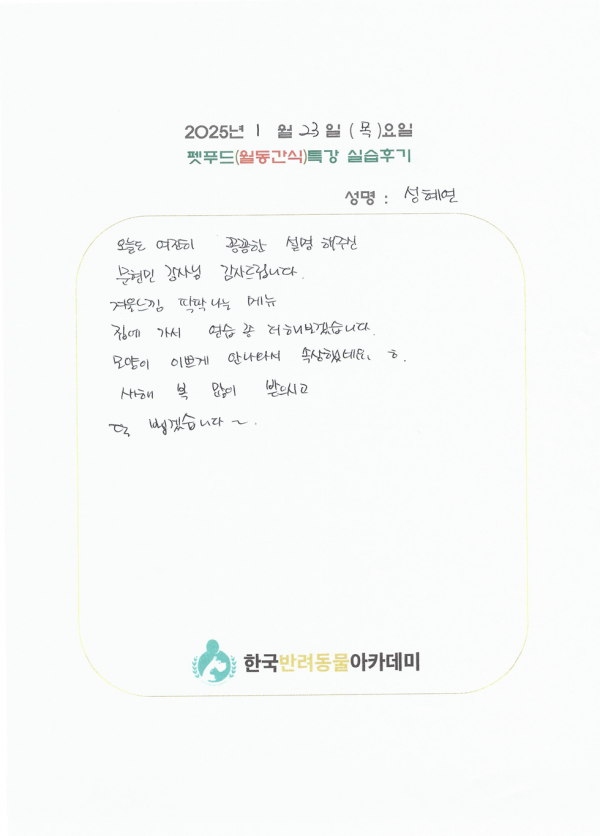 2025년 1 월 23일 (목)요일
펫푸드(월동간식)특강 실습후기
성명 : 성혜연
오늘도 여전히 꼼꼼한 설명 해주신
문현민 강사님 감사드립니다.
겨울느낌 팍팍 나는 메뉴
집에 가서 연습 좀 더 해보겠습니다.
모양이 이쁘게 안나와서 속상했네요. ㅎ.
새해 복 많이 받으시고
또 뵙겠습니다~.
한국반려동물아카데미